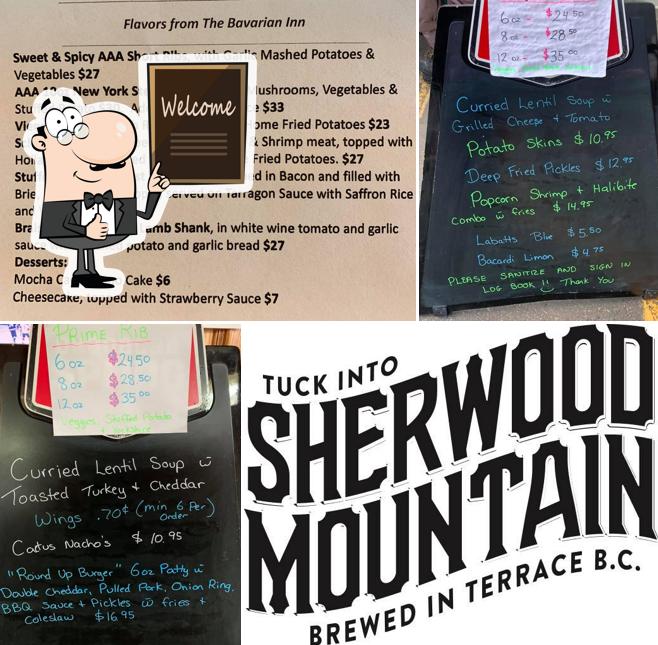 Flavors from The Bavarian Inn
Sweet & Spicy AAA Short Ribs, with Garlic Mashed Potatoes &
Vegetables $27
AAA New York Mushrooms, Vegetables &
$33
Fried Potatoes $23
& Shrimp meat, topped with
Fried Potatoes. $27
in Bacon and filled with
Brie served on Tarragon Sauce with Saffron Rice
and
Lamb Shank, in white wine tomato and garlic
potato and garlic bread $27
Desserts:
Mocha Cake $6
Cheesecake, topped with Strawberry Sauce $7
Welcome
6 oz - $24.50
8 oz - $28.50
12 oz - $35.00
Curried Lentil Soup w
Grilled Cheese + Tomato
Potato Skins $10.95
Deep Fried Pickles $12.95
Popcorn Shrimp + Halibite
Combo w fries $14.95
Labatts Blue $5.50
Bacardi Limon $4.75
PLEASE SANITIZE AND SIGN IN
LOG BOOK !! Thank You
PRIME RIB
6 oz $24.50
8 oz $28.50
12 oz $35.00
Veggies, Stuffed Potato
+ Yorkshire
Curried Lentil Soup w
Toasted Turkey + Cheddar
Wings .70¢ (min 6 Per)
Order
Cactus Nacho's $10.95
"Round Up Burger" 6oz Patty w
Double Cheddar, Pulled Pork, Onion Ring,
BBQ Sauce + Pickles w fries +
Coleslaw $16.95
TUCK INTO
SHERWOOD
MOUNTAIN
BREWED IN TERRACE B.C.